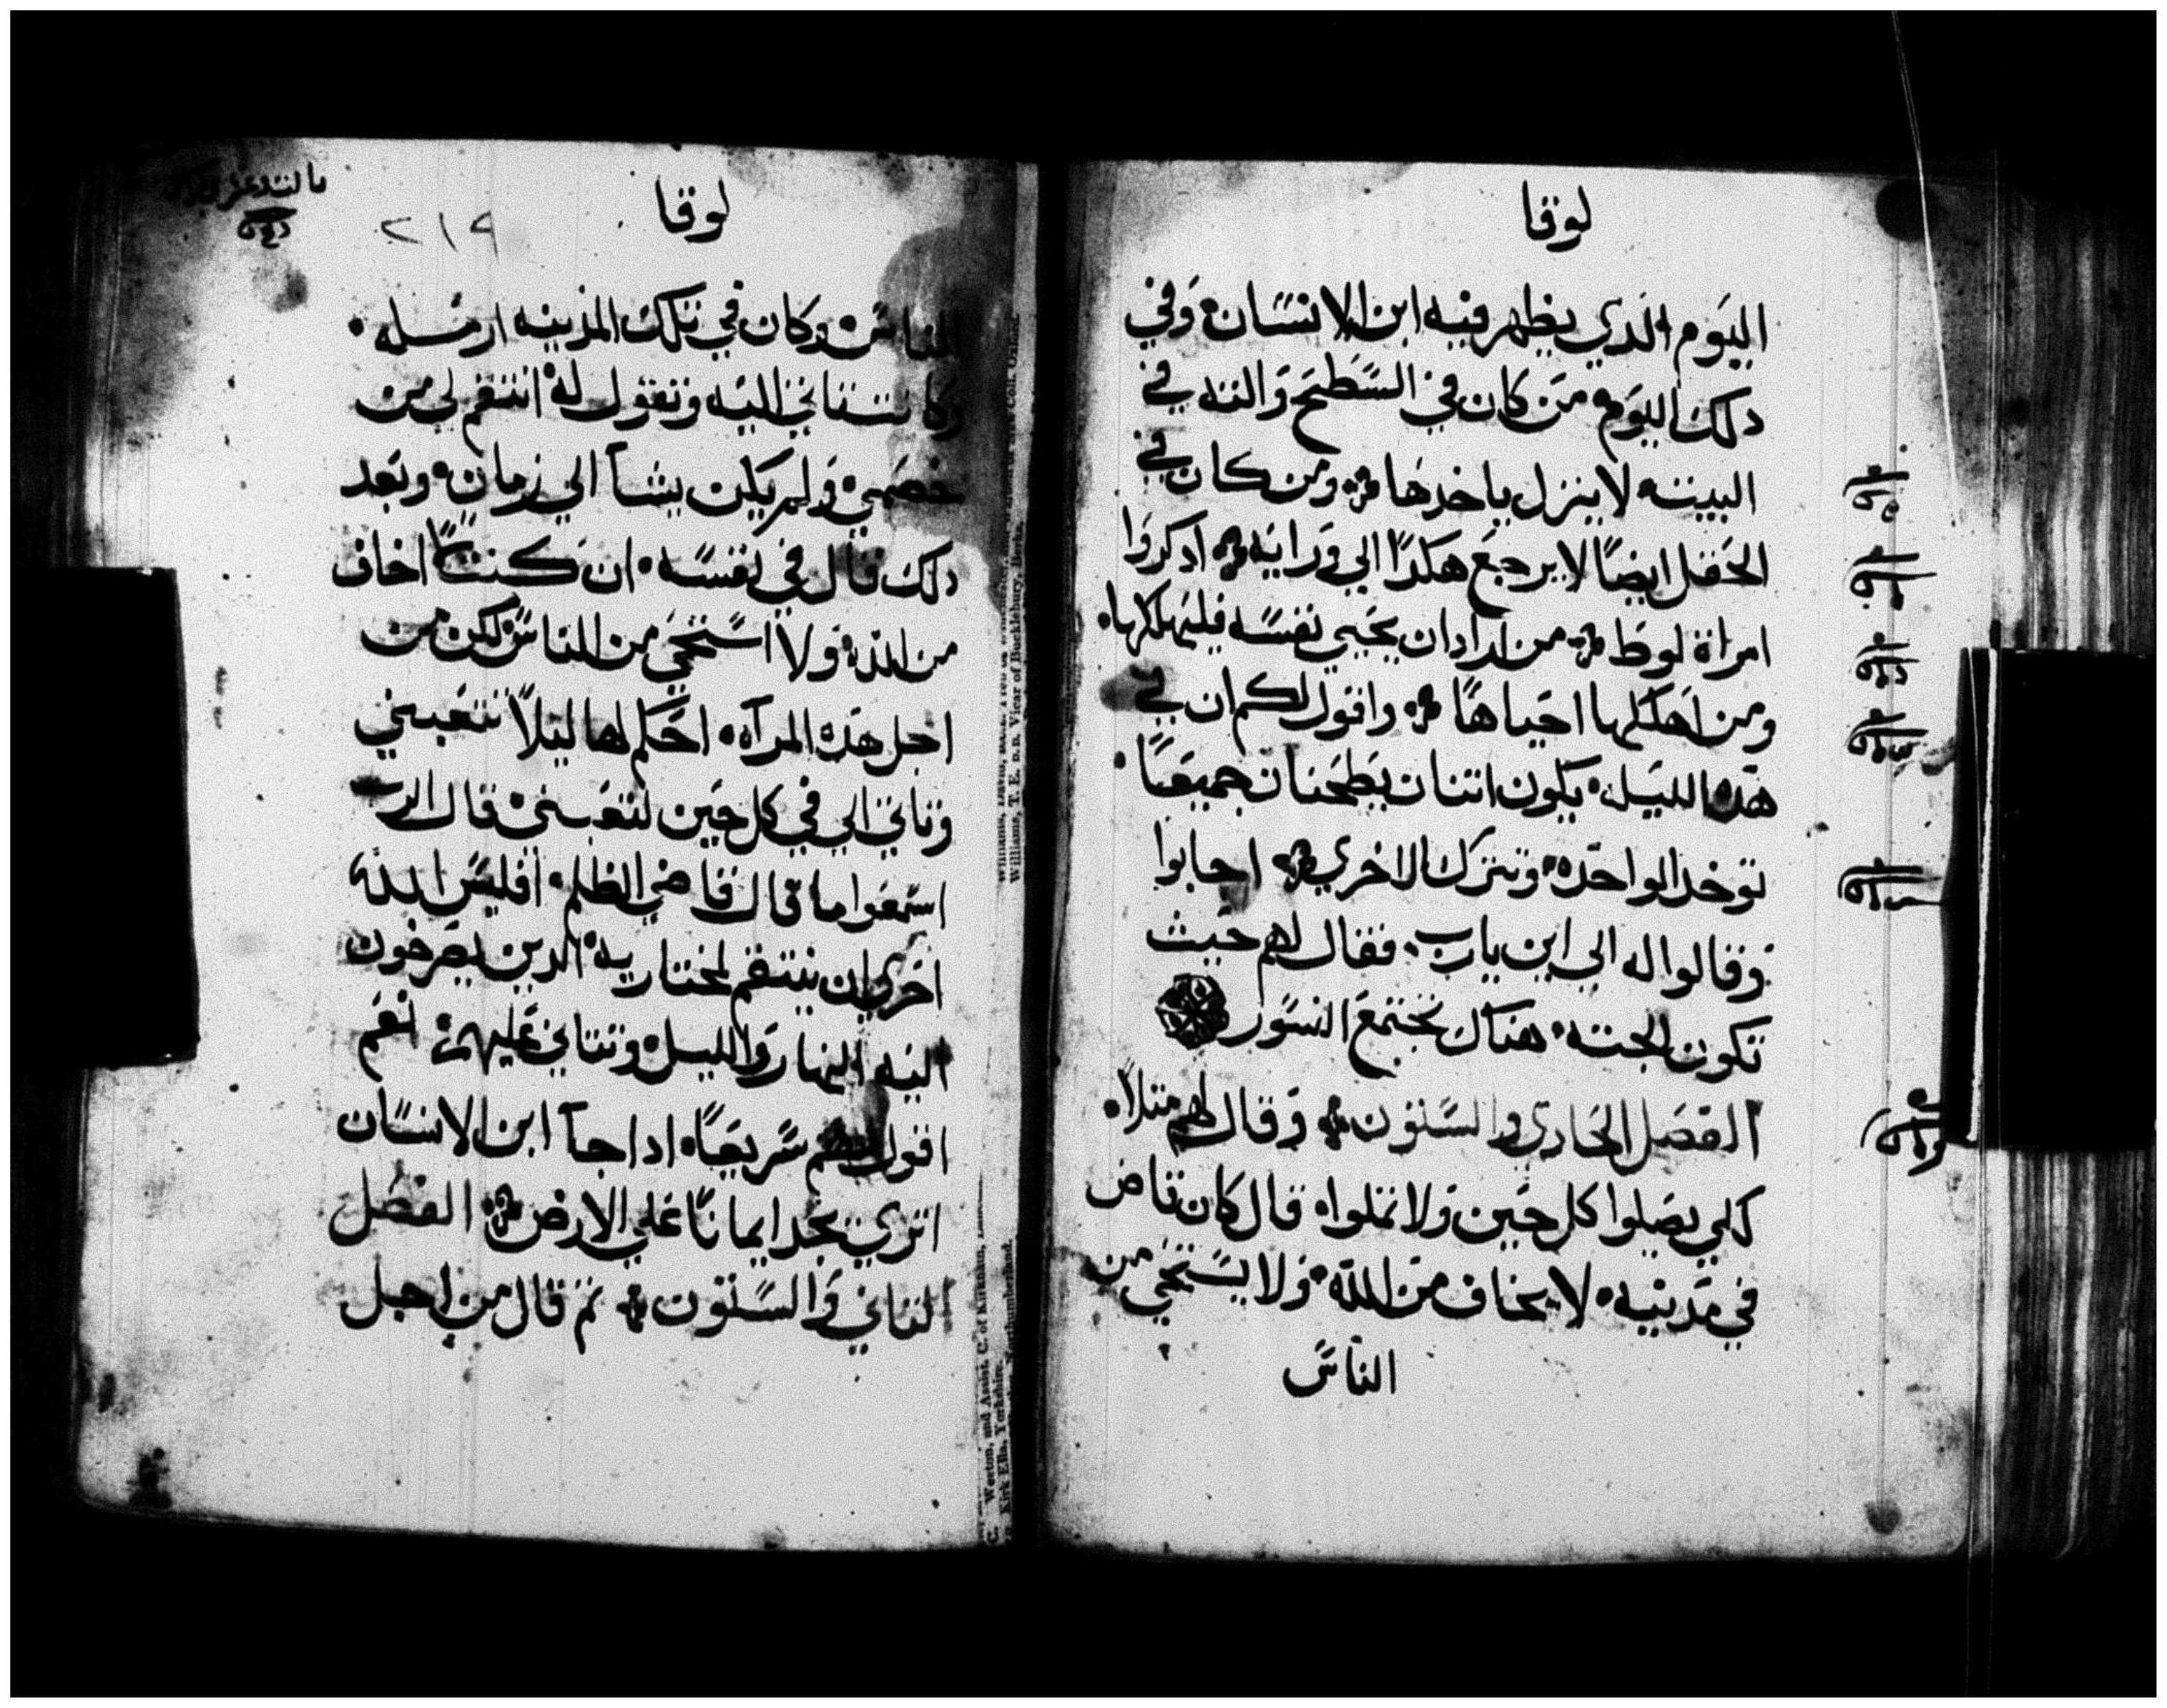 لوقا
اليوم الدي يظهر فيه ابن الانسان وفي
دلك اليوم من كان في السطح والته في
البيت لا ينزل ياخدها ومن كان في
الحقل ايضًا لا يرجع هكدًا الي ورايه ادكروا
امراة لوط من اراد ان يحيي نفسه فليهلكها
ومن اهلكها احياها واقول لكم ان في
هده الليله يكون اتنان يطحنان جميعًا
توخد الواحده وتترك الاخري اجابوا
وقالوا له الي اين يارب فقال لهم حيث
تكون الجته هناك تجتمع النسور
الفصل الحادي والستون وقال لهم متلًا
كلي يصلوا كل حين ولا يملوا قال كان قاض
في مدينه لا يخاف من الله ولا يستحي من
الناس
لوقا
٢١٩
الناس وكان في تلك المدينه ارمله
وكانت تاتي اليه وتقول له انتقم لي من
خصمي ولم يكن يشآ الي زمان وبعد
دلك قال في نفسه ان كنت لا اخاف
من الله ولا استحي من الناس لكن من
اجل هده المرآه احكم لها ليلًا تتعبني
وتاتي الي في كل حين لتتعبني قال الرب
اسمعوا ما قال قاضي الظلم افليس الله
احري ان ينتقم لمختاريه الدين يصرخون
اليه النهار والليل ويتاني عليهم نعم
اقول لكم سريعًا ادا جآ ابن الانسان
اتري يجد ايمانًا علي الارض الفصل
التاني والستون تم قال من اجل